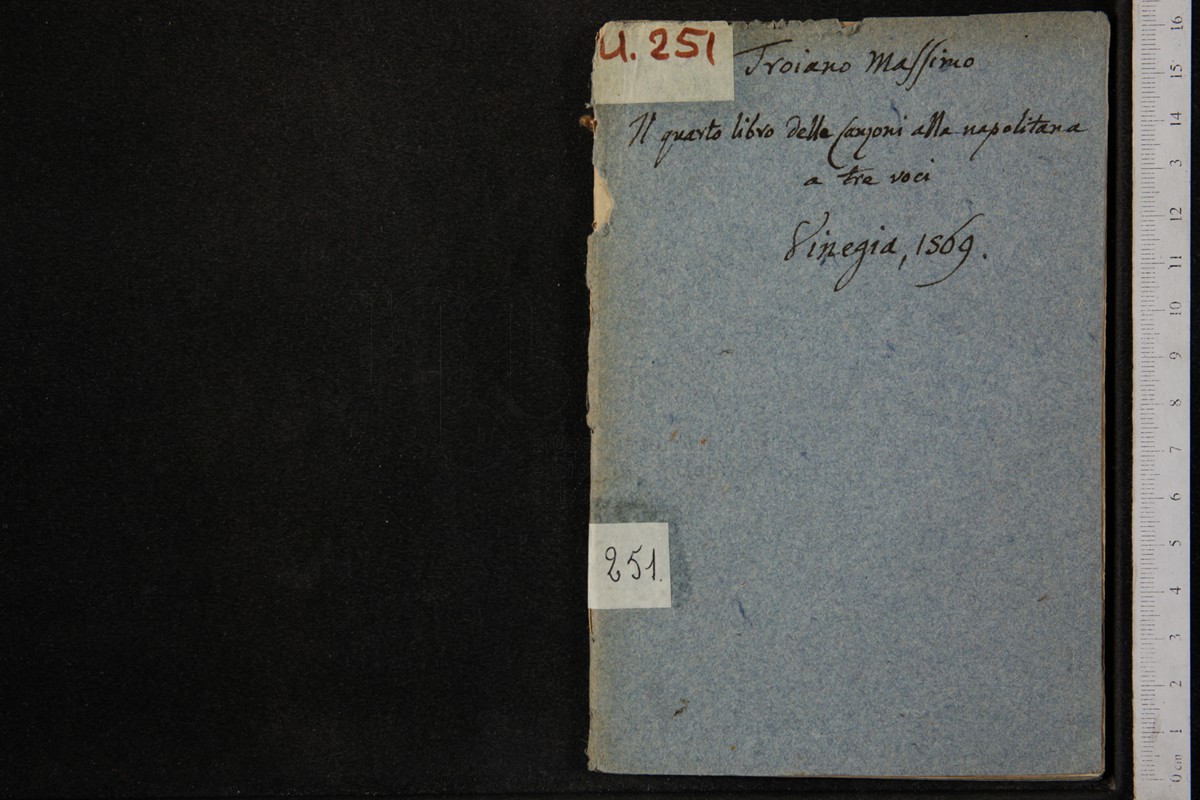 U. 251
Troiano Massimo
Il quarto libro delle Canzoni alla napolitana
a tre voci
Vinegia, 1569.
251.
16
15
14
13
12
11
10
9
8
7
6
5
4
3
2
1
0 cm